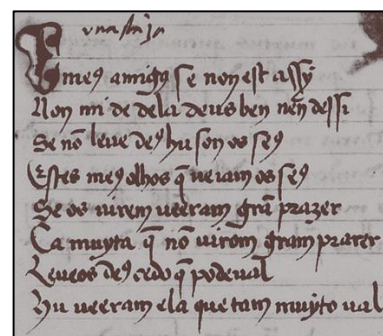 E meꝯ amigꝯ se non est assy
Non mi de dela deus ben nen dessi
Se nõ leue deꝯ hu son os seꝯ
Estes meꝯ olhos q̃ ueiam os seꝯ
Se os uirem ueeram grã prazer
Ca muyta q̃ nõ uirom gram prazer
Leueos deꝯ cedo q̃ podeual
Hu ueeram ela que tam muyto val